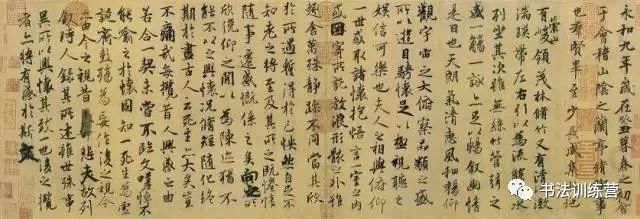 永和九年歲在癸丑暮春之初會
于會稽山陰之蘭亭脩稧事
也群賢畢至少長咸集此地
有崇山峻領茂林脩竹又有清流激
湍暎帶左右引以為流觴曲水
列坐其次雖無絲竹管弦之
盛一觴一詠亦足以暢敘幽情
是日也天朗氣清惠風和暢仰
觀宇宙之大俯察品類之盛
所以遊目騁懷足以極視聽之
娛信可樂也夫人之相與俯仰
一世或取諸懷抱悟言一室之內
或因寄所託放浪形骸之外雖
趣舍萬殊靜躁不同當其欣
於所遇暫得於己怏然自足不
知老之將至及其所之既惓情
隨事遷感慨係之矣向之所
欣俛仰之閒以為陳跡猶不
能不以之興懷況脩短隨化終
期於盡古人云死生亦大矣豈
不痛哉每攬昔人興感之由
若合一契未嘗不臨文嗟悼不
能喻之於懷固知一死生為虛
誕齊彭殤為妄作後之視今
亦由今之視昔悲夫故列
敘時人錄其所述雖世殊事
異所以興懷其致一也後之攬
者亦將有感於斯文
书法训练营